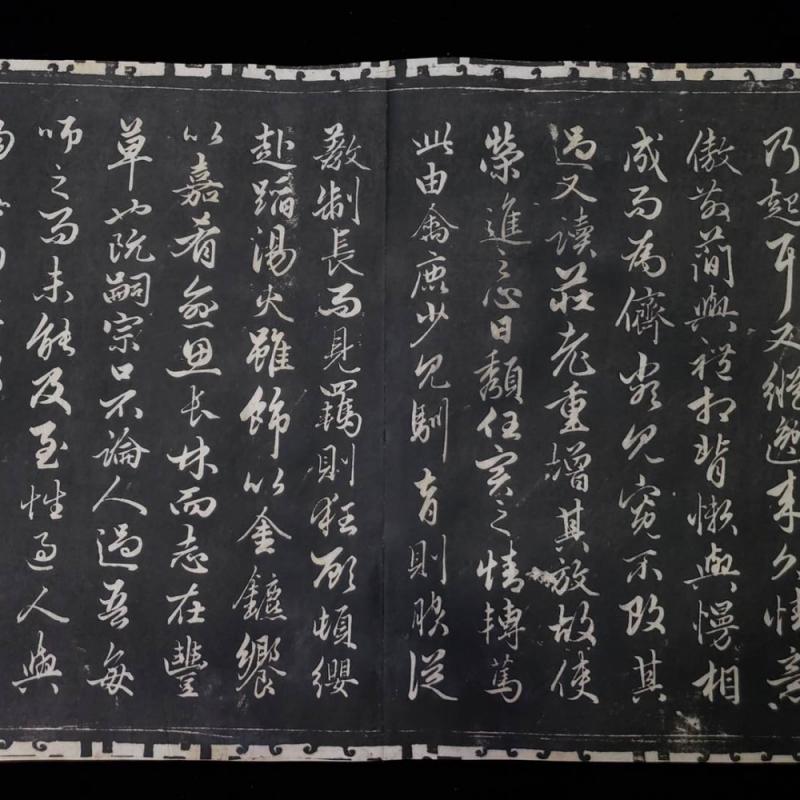 乃起耳又縱逸來久情意
傲散簡與禮相背懶與慢相
成而為儕類見寬不攻其
過又讀莊老重增其放故使
榮進之心日頹任實之情轉篤
此由禽鹿少見馴育則服從
教制長而見羈則狂顧頓纓
赴蹈湯火雖飾以金鑣饗
以嘉肴愈思長林而志在豐
草也阮嗣宗口不論人過吾每
師之而未能及至性過人與